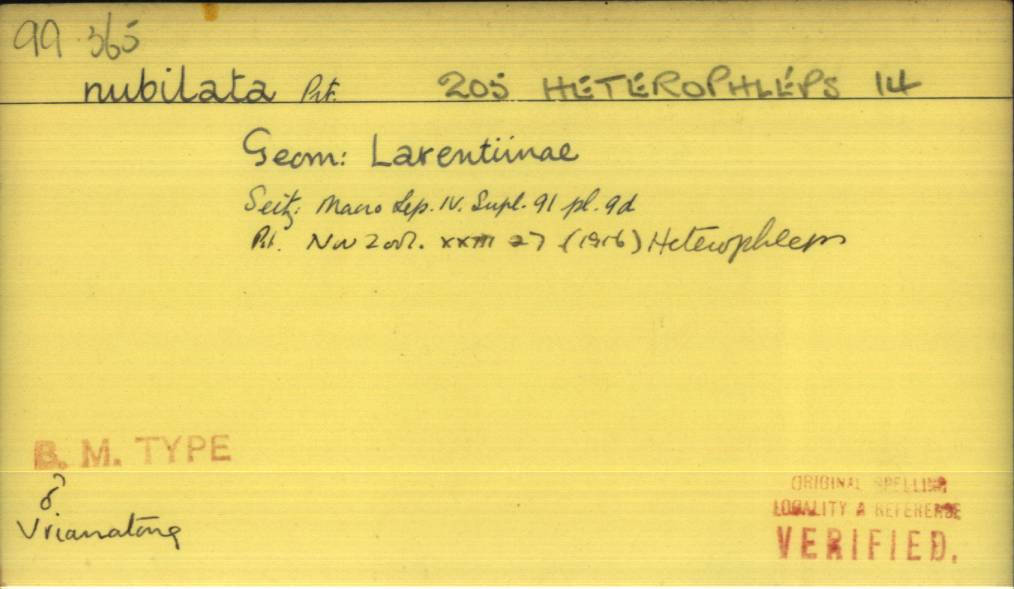 99 365
nubilata Prt. 205 HETEROPHLEPS 14
Geom: Larentiinae
Seitz: Macro Lep. IV. Supl. 91 pl. 9d
Prt. Nov Zool. XXIII 27 (1916) Heterophleps
B. M. TYPE
♂
Vrianatong
ORIGINAL SPELLING
LOCALITY & REFERENCE
VERIFIED.